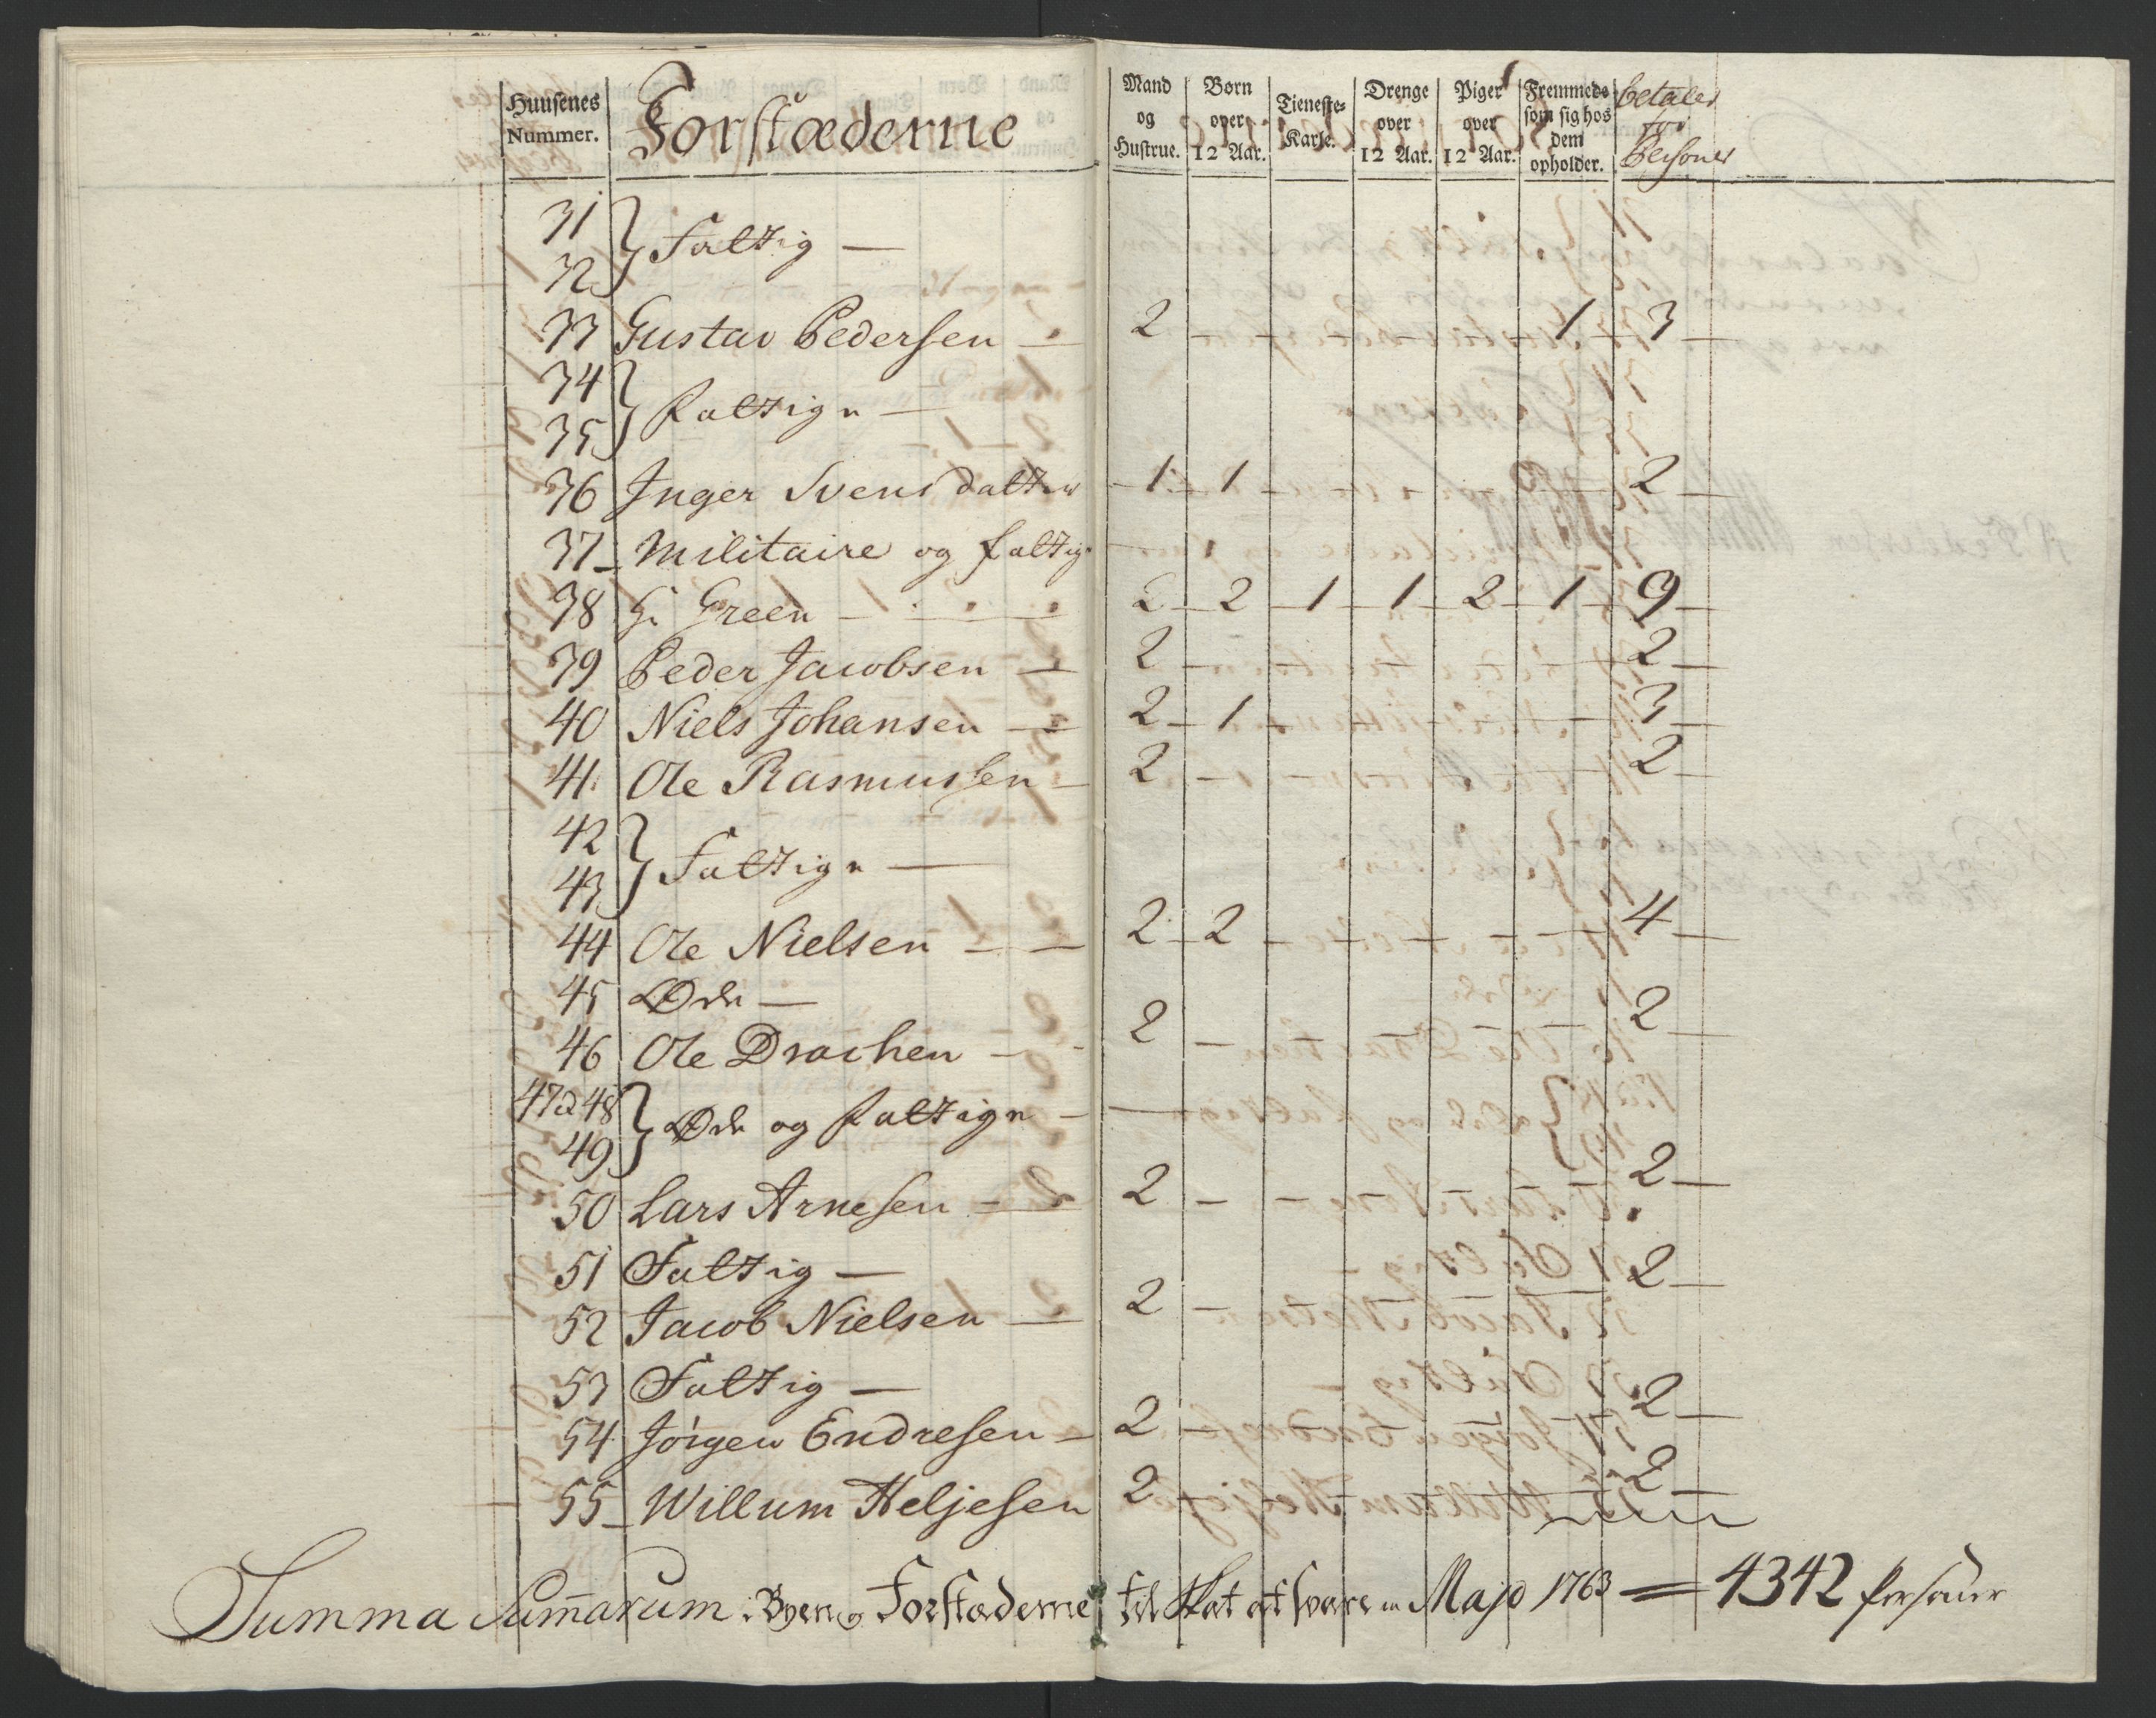 Huusenes Nummer. Forstæderne Mand og Hustrue. Børn over 12 Aar. Tieneste-Karle. Drenge over 12 Aar. Piger over 12 Aar. Fremmede som sig hos dem opholder. betaler for Personer
31
32 } Fattig —
33 Gustav Pedersen — 2 - - - - 1 - 3 -
34
35 } Fattige —
36 Inger Svens datter - 1 - 1 - - - - 2 -
37 - Militaire og fattige
38 Green - 2 - 2 - 1 - 1 - 2 - 1 - 9 -
39 Peder Jacobsen — 2 - - - - - 2 -
40 Niels Johansen — 2 - 1 - - - - 3 -
41. Ole Rasmussen - 2 - - - - - 2 -
42
43 } Fattige —
44 Ole Nielsen - - 2 - 2 - - - - 4 -
45 Øde —
46 Ole Drachen - 2 - - - - - 2 -
47 a 48
49 } Øde og fattige -
50 Lars Arnesen - 2 - - - - - 2 -
51 Fattig —
52 Jacob Nielsen — 2 - - - - - 2 -
53 Fattig —
54 Jørgen Endresen - 2 - - - - - 2 -
55 - Willum Heljesen 2 - - - - - 2 -
Summa Summarum i Byen og Forstæderne til Skat at svare Majo 1763 = 4342 Personer